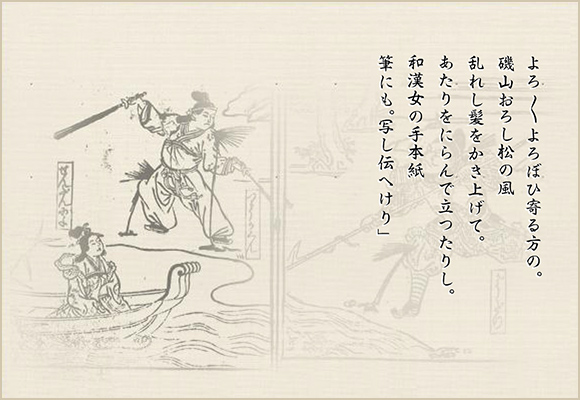 よろ〱よろぼひ寄る方の。
磯山おろし松の風
乱れし髪をかき上げて。
あたりをにらんで立つたりし。
和漢女の手本紙
筆にも。写し伝へけり」